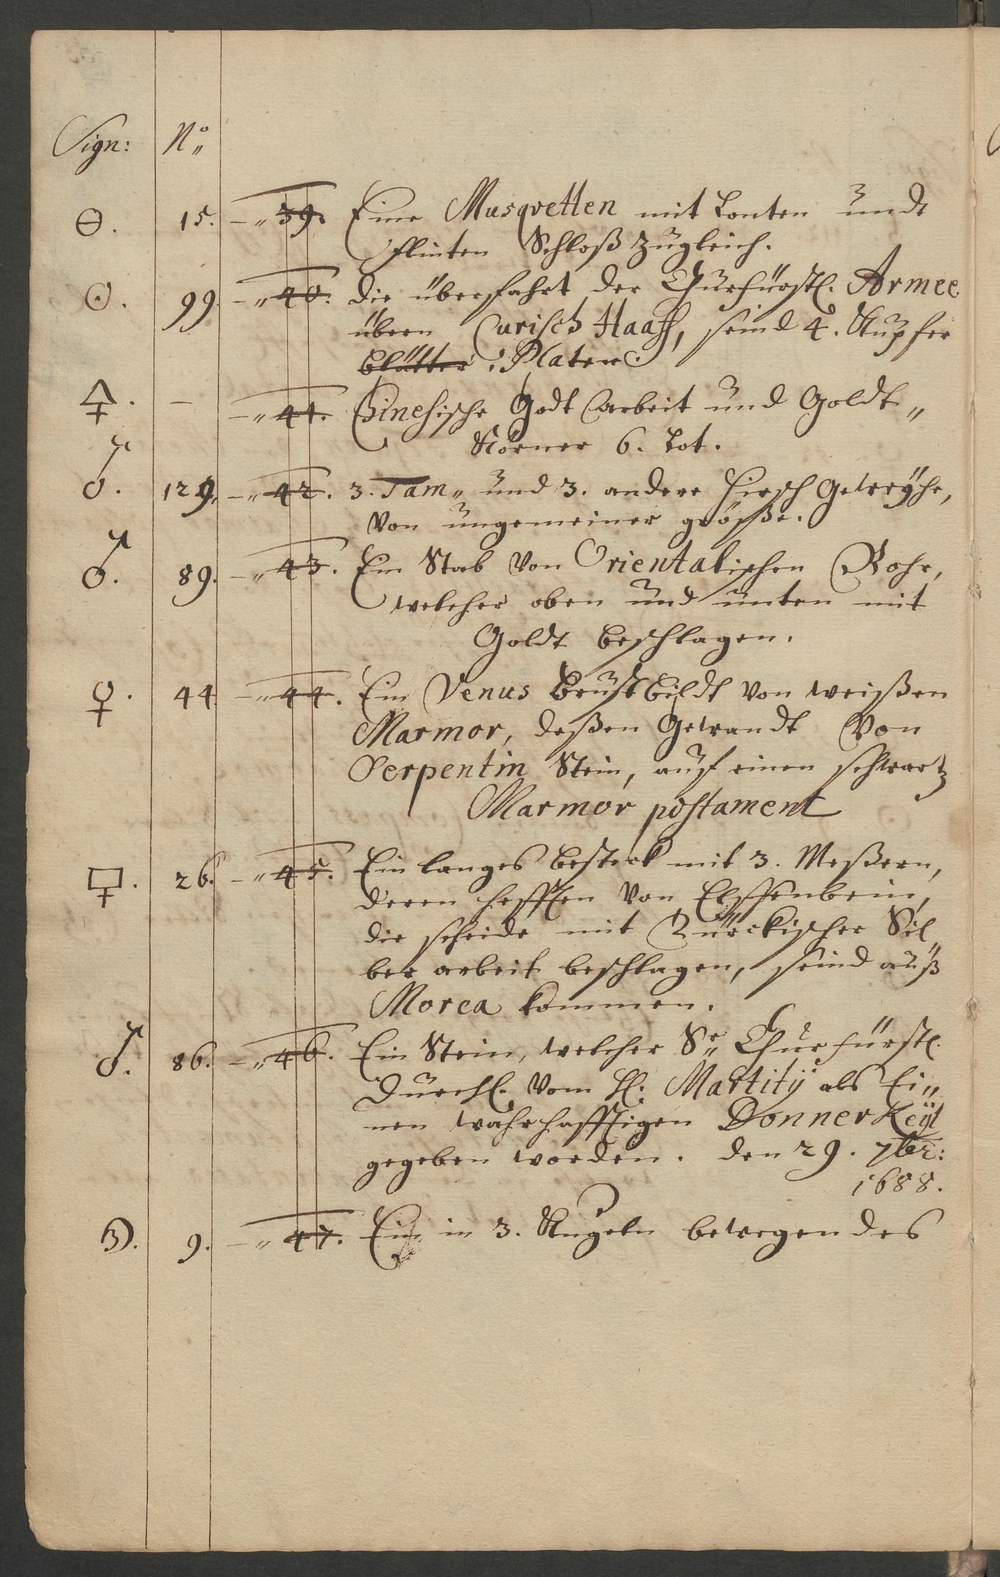 Sign: No
⊖. 15. 39. Eine Musqvetten mit Lonten undt
flinten Schloß zugleich.
☉. 99 40. Die überfahrt der Churfürstl. Armee
übern Curisch Haaff, seind 4. Kupfer
blätter : Platen
. – 41. Chinesische Godt arbeit und Goldt„
Körner 6. Lot.
♂. 129. 42. 3. Tam„ und 3. andere Hirsch Geweyhe,
von ungemeiner größe.
♂. 89. 43. Ein Stab von Orientalischen Rohr,
welcher oben und unten mit
Goldt beschlagen.
♀. 44 44. Ein Venus Brustbildt von weißen
Marmor, deßen Gewandt von
Serpentin Stein, auf einen schwartz
Marmor postament
. 26. 45. Ein langes besteck mit 3. Meßern,
deren hefften von Elffenbein,
die scheide mit Türckischer Sil
ber arbeit beschlagen, seind auß
Morea kommen.
♂. 86. 46. Ein Stein, welcher Sr. Churfürstl.
Durchl. vom H. Martitÿ als Ei„
nen wahrhafftigen Donner Keÿl
gegeben worden. den 29. 7br:
1688.
☽. 9. 47. Ein in 3. Kugeln bewegendes